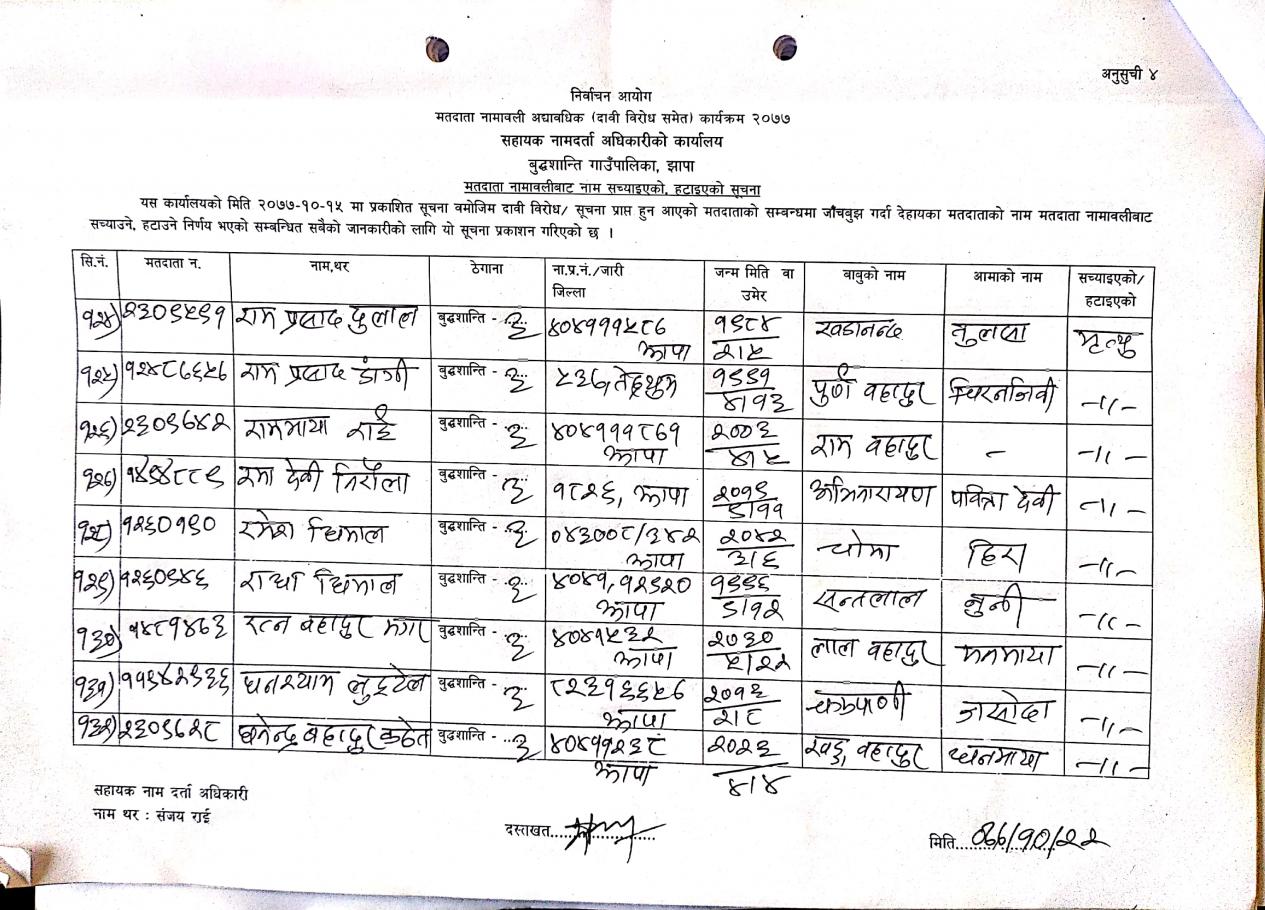 अनुसुची ४
निर्वाचन आयोग
मतदाता नामावली अद्यावधिक (दावी विरोध समेत) कार्यक्रम २०७७
सहायक नामदर्ता अधिकारीको कार्यालय
बुद्धशान्ति गाउँपालिका, झापा
मतदाता नामावलीबाट नाम सच्याइएको, हटाइएको सूचना
यस कार्यालयको मिति २०७७-१०-१५ मा प्रकाशित सूचना वमोजिम दावी विरोध/ सूचना प्राप्त हुन आएको मतदाताको सम्बन्धमा जाँचबुझ गर्दा देहायका मतदाताको नाम मतदाता नामावलीबाट
सच्याउने, हटाउने निर्णय भएको सम्बन्धित सबैको जानकारीको लागि यो सूचना प्रकाशन गरिएको छ ।
सि.नं. मतदाता न. नाम,थर ठेगाना ना.प्र.नं./जारी जिल्ला जन्म मिति वा उमेर बाबुको नाम आमाको नाम सच्याइएको/ हटाइएको
१२४) २३०९५९१ राम प्रसाद दुलाल बुद्धशान्ति - ३ ४०४१११५८७ झापा १९८४ २।५ खडानन्द तुलसा मृत्यु
१२५) १२४८७६५७ राम प्रसाद डाँगी बुद्धशान्ति - ३ ५३७, तेह्रथुम १९९१ ४।१३ पुर्ण वहादुर चिरनजिवी -11-
१२६) २३०९७४२ राममाया राई बुद्धशान्ति - ३ ४०४१११८७१ झापा २००३ ४।५ राम वहादुर - -11-
१२७) १४९४८८९ रमा देवी निरौला बुद्धशान्ति - ३ १८२६, झापा २०१९ ८।११ अभिनारायण पवित्रा देवी -11-
१२८) १२६०१९० रमेश धिमाल बुद्धशान्ति - ३ ०४३००८/३४२ झापा २०४२ ३।६ चोमा हिरा -11-
१२९) १२६०९४६ राधा धिमाल बुद्धशान्ति - ३ ४०४१, १२९२० झापा १९९६ ८।१२ सन्तलाल -11-
१३०) १४८१४७३ रत्न बहादुर मगर बुद्धशान्ति - ३ ४०४१५३२ झापा २०३० ५।२२ लाल वहादुर मनमाया -11-
१३१) ११९४२९३६ घनश्याम लुइटेल बुद्धशान्ति - ३ ८२३१६६५७ झापा २०१६ २।८ चक्रपाणी जसोदा -11-
१३२) २३०९७२८ बहादुर बुद्धशान्ति - ३ ४०४११२३८ झापा २०२३ ४।४ खड्ग वहादुर धनमाया -11-
सहायक नाम दर्ता अधिकारी
नाम थर : संजय राई
दस्ताखत..............
मिति..०७७/१०/२२